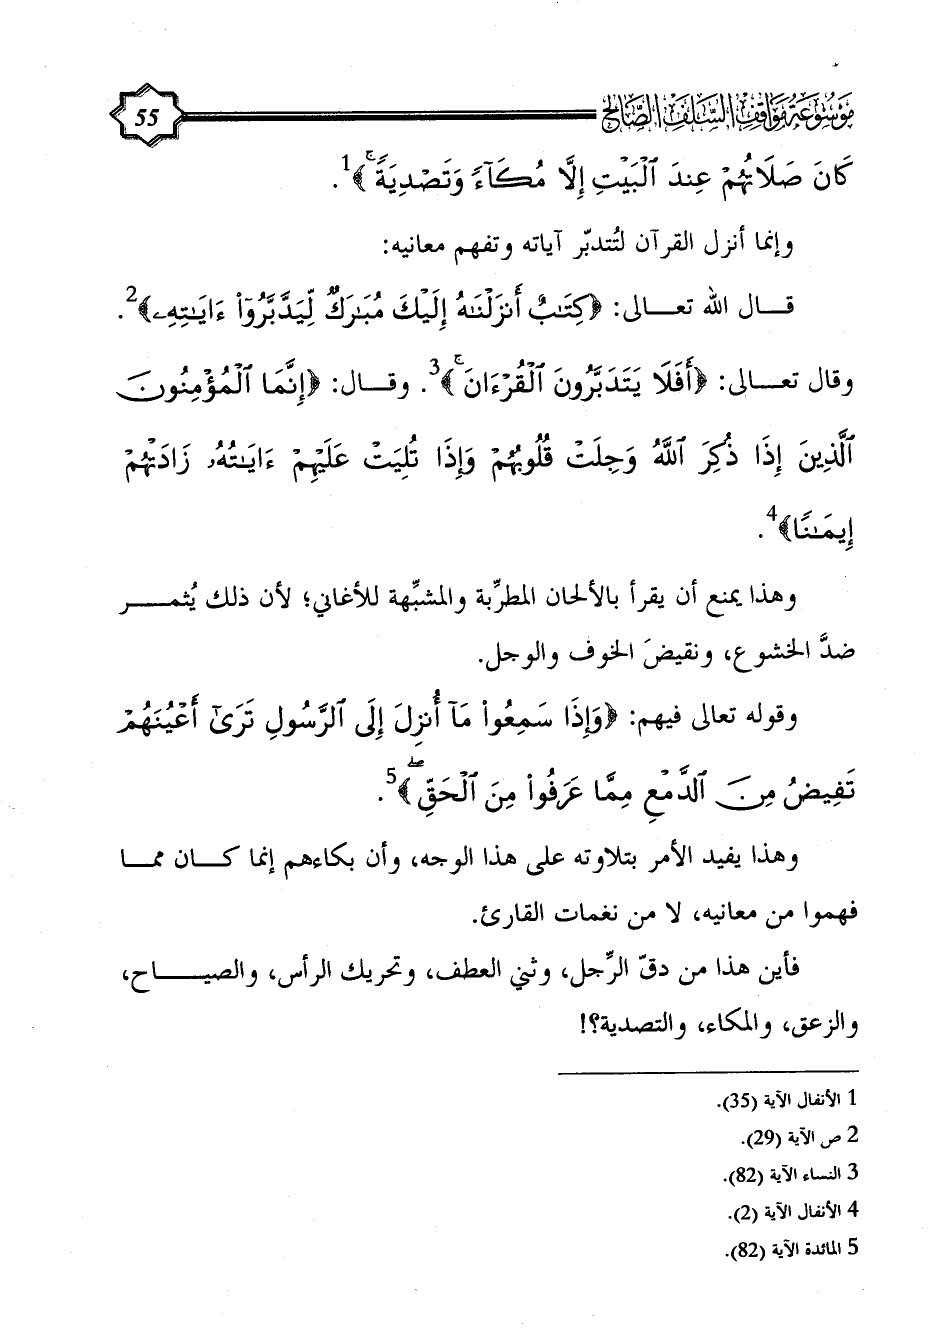 موسوعة مواقف السلف الصالح
55
كَانَ صَلَاتُهُمْ عِندَ ٱلْبَيْتِ إِلَّا مُكَآءً وَتَصْدِيَةً ۚ﴾1.
وإنما أنزل القرآن لتُتدبّر آياته وتفهم معانيه:
قـــال الله تعـــالى: ﴿كِتَٰبٌ أَنزَلْنَٰهُ إِلَيْكَ مُبَٰرَكٌ لِّيَدَّبَّرُوٓا۟ ءَايَٰتِهِۦ﴾2.
وقال تعـــالى: ﴿أَفَلَا يَتَدَبَّرُونَ ٱلْقُرْءَانَ ۚ﴾3. وقـــال: ﴿إِنَّمَا ٱلْمُؤْمِنُونَ
ٱلَّذِينَ إِذَا ذُكِرَ ٱللَّهُ وَجِلَتْ قُلُوبُهُمْ وَإِذَا تُلِيَتْ عَلَيْهِمْ ءَايَٰتُهُۥ زَادَتْهُمْ
إِيمَٰنًا﴾4.
وهذا يمنع أن يقرأ بالألحان المطرِّبة والمشبِّهة للأغاني؛ لأن ذلك يُثمـــر
ضدَّ الخشوع، ونقيضَ الخوف والوجل.
وقوله تعالى فيهم: ﴿وَإِذَا سَمِعُوا۟ مَآ أُنزِلَ إِلَى ٱلرَّسُولِ تَرَىٰٓ أَعْيُنَهُمْ
تَفِيضُ مِنَ ٱلدَّمْعِ مِمَّا عَرَفُوا۟ مِنَ ٱلْحَقِّ ۖ﴾5.
وهذا يفيد الأمر بتلاوته على هذا الوجه، وأن بكاءهم إنما كـــان ممـــا
فهموا من معانيه، لا من نغمات القارئ.
فأين هذا من دقّ الرِّجل، وثني العطف، وتحريك الرأس، والصيـــاح،
والزعق، والمكاء، والتصدية؟!
1 الأنفال الآية (35).
2 ص الآية (29).
3 النساء الآية (82).
4 الأنفال الآية (2).
5 المائدة الآية (82).